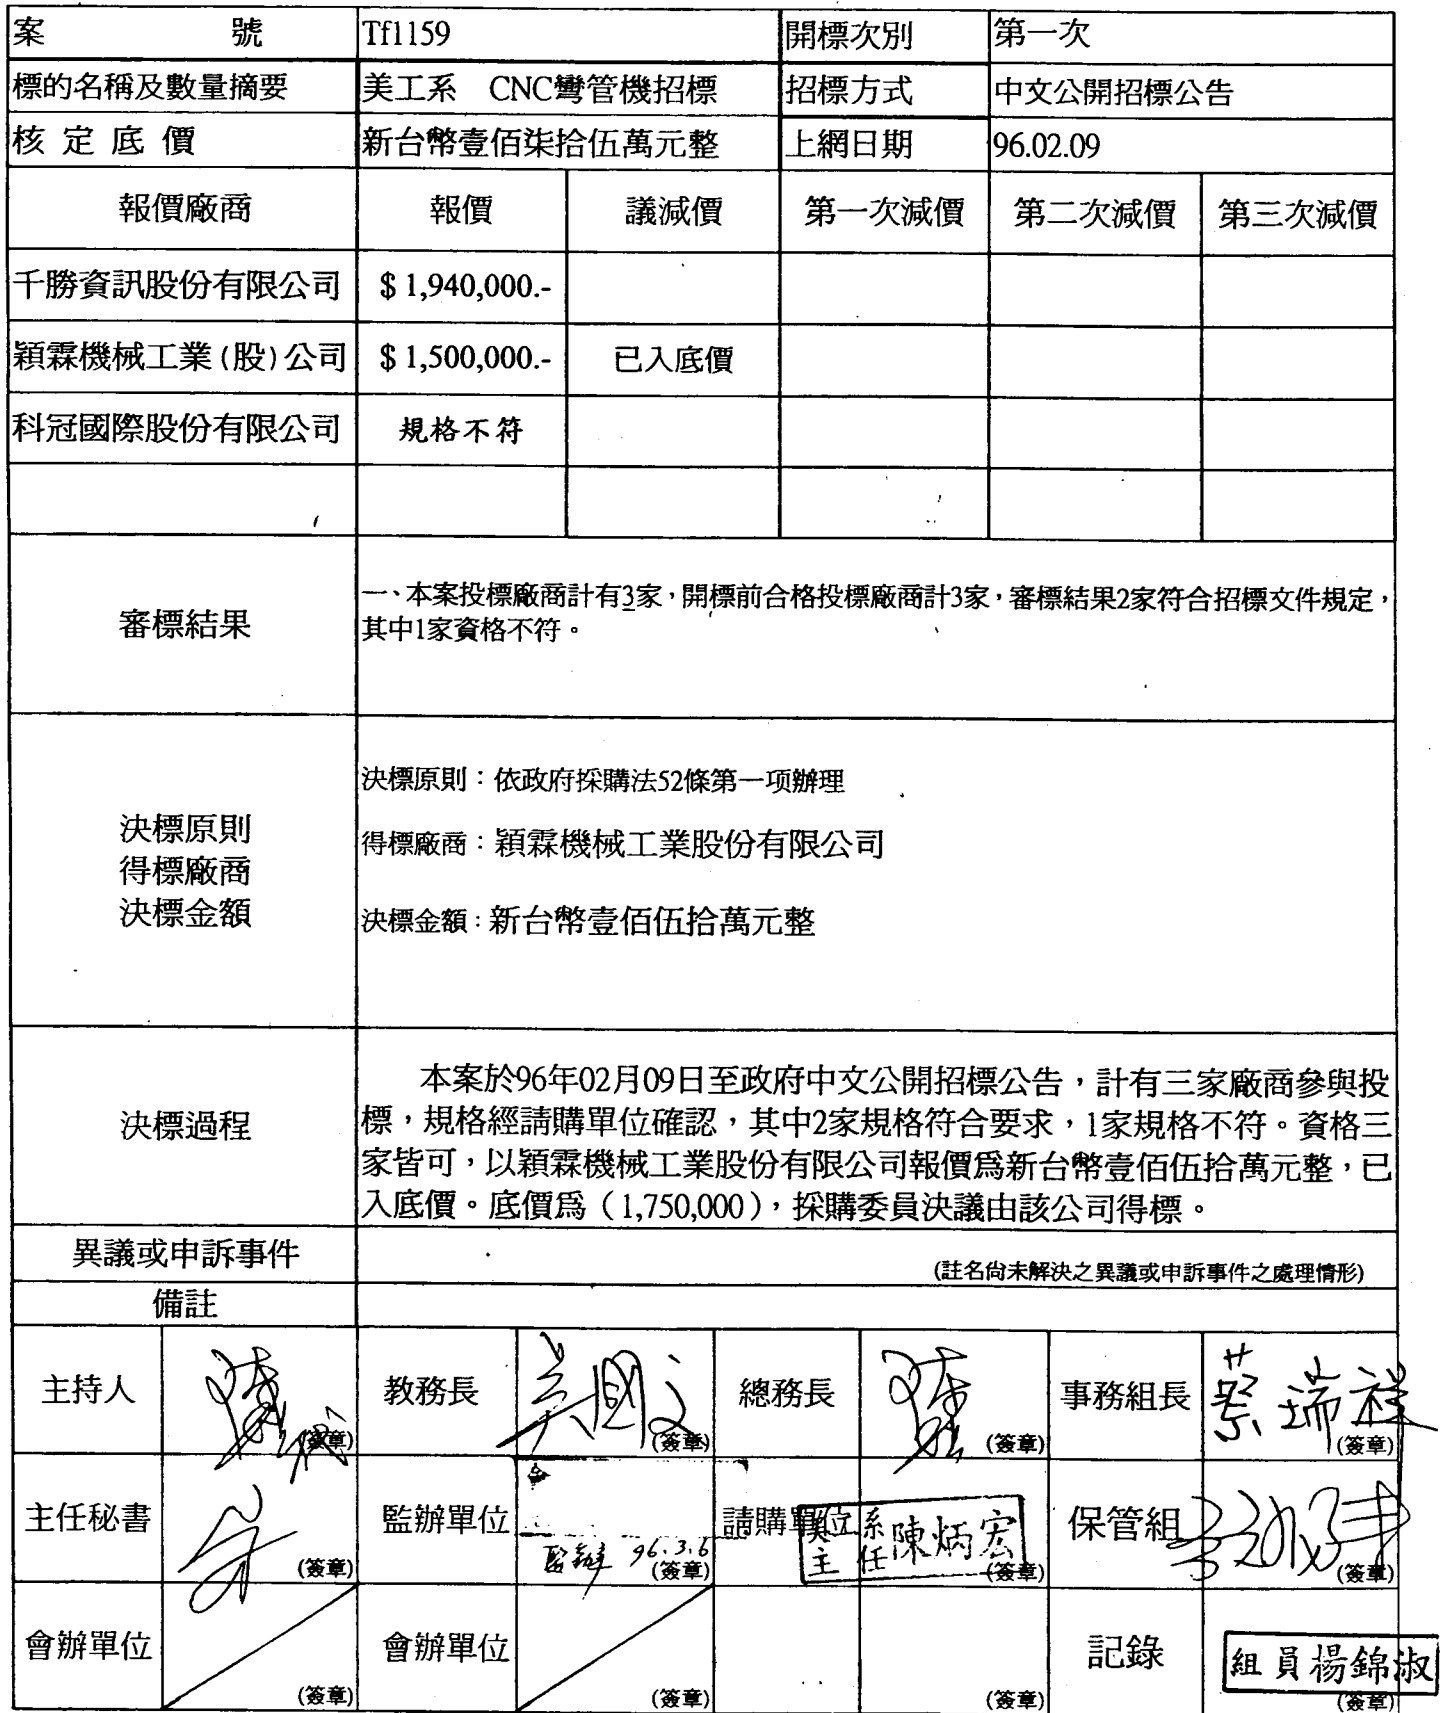 案號 Tf1159 開標次別 第一次
標的名稱及數量摘要 美工系 CNC彎管機招標 招標方式 中文公開招標公告
核定底價 新台幣壹佰柒拾伍萬元整 上網日期 96.02.09
報價廠商 報價 議減價 第一次減價 第二次減價 第三次減價
千勝資訊股份有限公司 $1,940,000.-
穎霖機械工業(股)公司 $1,500,000.- 已入底價
科冠國際股份有限公司 規格不符
審標結果
一、本案投標廠商計有3家，開標前合格投標廠商計3家，審標結果2家符合招標文件規定，
其中1家資格不符。
決標原則
得標廠商
決標金額
決標原則：依政府採購法52條第一项辦理
得標廠商：穎霖機械工業股份有限公司
決標金額：新台幣壹佰伍拾萬元整
決標過程
本案於96年02月09日至政府中文公開招標公告，計有三家廠商參與投
標，規格經請購單位確認，其中2家規格符合要求，1家規格不符。資格三
家皆可，以穎霖機械工業股份有限公司報價爲新台幣壹佰伍拾萬元整，已
入底價。底價爲（1,750,000），採購委員決議由該公司得標。
異議或申訴事件 (註名尚未解決之異議或申訴事件之處理情形)
備註
主持人 (簽章) 教務長 (簽章) 總務長 (簽章) 事務組長 蔡瑞祥 (簽章)
主任秘書 (簽章) 監辦單位 監辦 96.3.6 (簽章) 請購單位 系主任陳炳宏 (簽章) 保管組 (簽章)
會辦單位 (簽章) 會辦單位 (簽章) (簽章) 記錄 組員楊錦淑 (簽章)